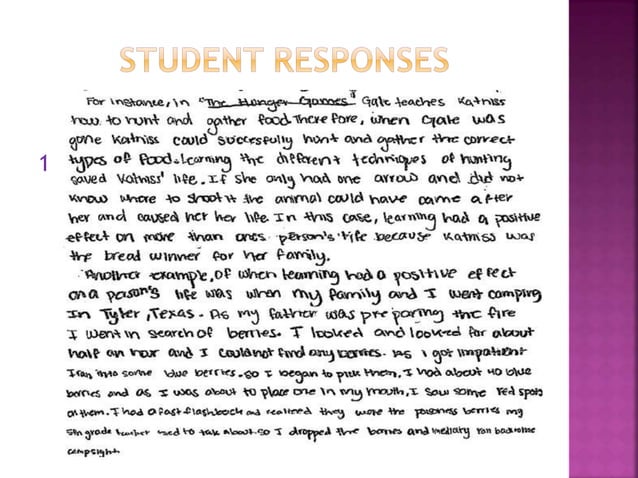 STUDENT RESPONSES
1
For instance, in "The Hunger Games" Gale teaches Katniss
how to hunt and gather food. Therefore, when Gale was
gone Katniss could succesfully hunt and gather the correct
types of food. Learning the different techniques of hunting
saved Katniss' life. If she only had one arrow and did not
know where to shoot it the animal could have came after
her and caused her her life. In this case, learning had a positive
effect on more than ones person's life because Katniss was
the bread winner for her family.
Another example, of when learning had a positive effect
on a person's life was when my family and I went camping
In Tyler, Texas. As my father was preparing the fire
I went in search of berries. I looked and looked for about
half an hour and I could not find any berries. As I got impatient
I ran into some blue berries. So I began to pick them. I had about 40 blue
berries and as I was about to place one in my mouth, I saw some red spots
on them. I had a fast flashback and realized they were the berries my
5th grade teacher used to talk about. So I dropped the and ran back
campsight.